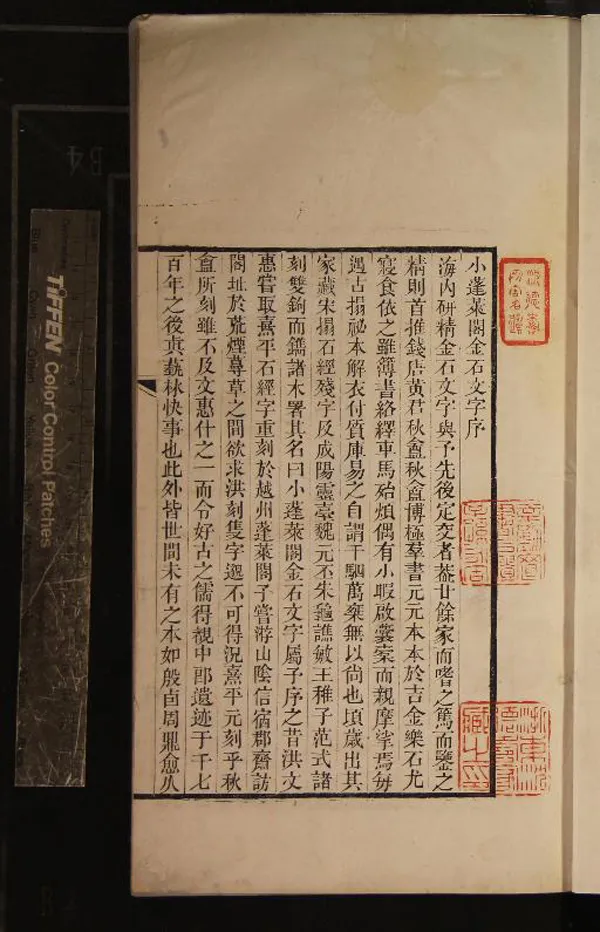 小蓬萊閣金石文字序
海內研精金石文字與予先後定交者葢廿餘家而嗜之篤而鑒之
精則首推錢唐黃君秋盦秋盦博極羣書元元本本於吉金樂石尤
寢食依之雖簿書絡繹車馬殆煩偶有小暇啟囊橐而親摩挲焉每
遇古搨祕本解衣付質庫易之自謂千駟萬乘無以尙也頃歲出其
家藏宋搨石經殘字及成陽靈臺魏元丕朱龜譙敏王稚子范式諸
刻雙鉤而鐫諸木署其名曰小蓬萊閣金石文字屬予序之昔洪文
惠嘗取熹平石經字重刻於越州蓬萊閣予嘗游山陰信宿郡齋訪
閣址於荒煙蔓草之間欲求洪刻隻字邈不可得況熹平元刻乎秋
盦所刻雖不及文惠什之一而令好古之儒得覩中郎遺迹于千七
百年之後真蓺林快事也此外皆世間未有之本如殷卣周鼎愈久
TIFFEN Color Control Patches
B4